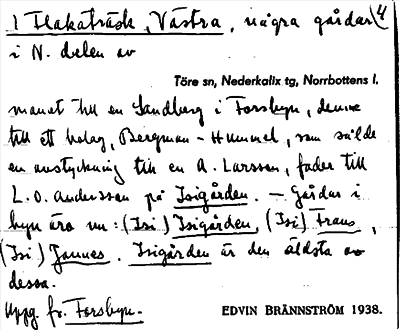 1 Flakaträsk, Västra, några gårdar 4
i N. delen av
Töre sn, Nederkalix tg, Norrbottens l.
manet till en Sandberg i Forsbyn, denne
till ett bolag, Bergman - Hummel, som sålde
en avstyckning till en A. Larsson, fader till
L. O. Andersson på Isigården. — Gårdar i
byn äro nu: (Isi) Isigården, (Isi) Frans,
(Isi) Jannes. Isigården är den äldsta av
dessa.
Uppg. fr. Forsbyn.
EDVIN BRÄNNSTRÖM 1938.